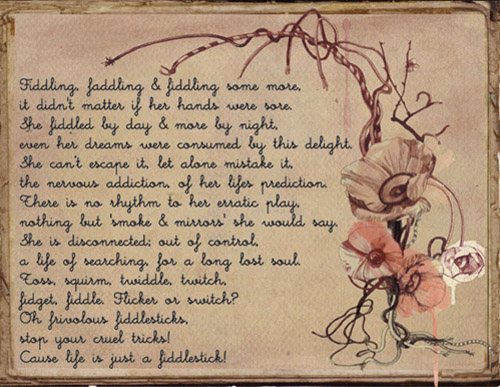 Fiddling, faddling & fiddling some more,
it didn't matter if her hands were sore.
She fiddled by day & more by night,
even her dreams were consumed by this delight.
She can't escape it, let alone mistake it,
the nervous addiction, of her lifes prediction.
There is no rhythm to her erratic play,
nothing but 'smoke & mirrors' she would say.
She is disconnected; out of control,
a life of searching, for a long lost soul.
Toss, squirm, twiddle, twitch,
fidget, fiddle. Flicker or switch?
Oh frivolous fiddlesticks,
stop your cruel tricks!
Cause life is just a fiddlestick!